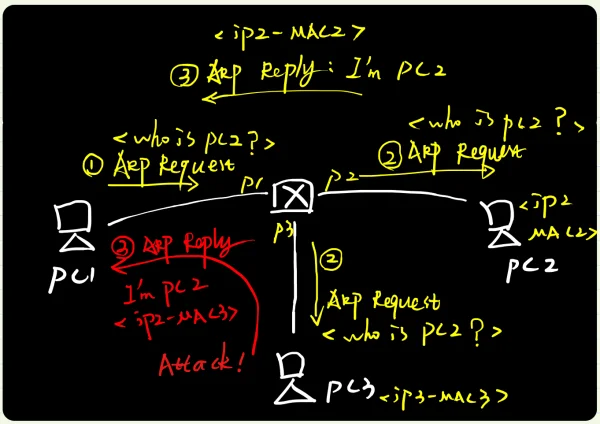 <ip2-MAC2>
③ Arp Reply: I'm PC2
<who is pc2?>
① Arp Request
<who is pc2?>
② Arp Request
P1
P2
P3
PC1
<ip2
MAC2>
PC2
③ Arp Reply
I'm pc2
<ip2-MAC3>
Attack!
②
Arp Request
<who is pc2?>
PC3 <ip3-MAC3>